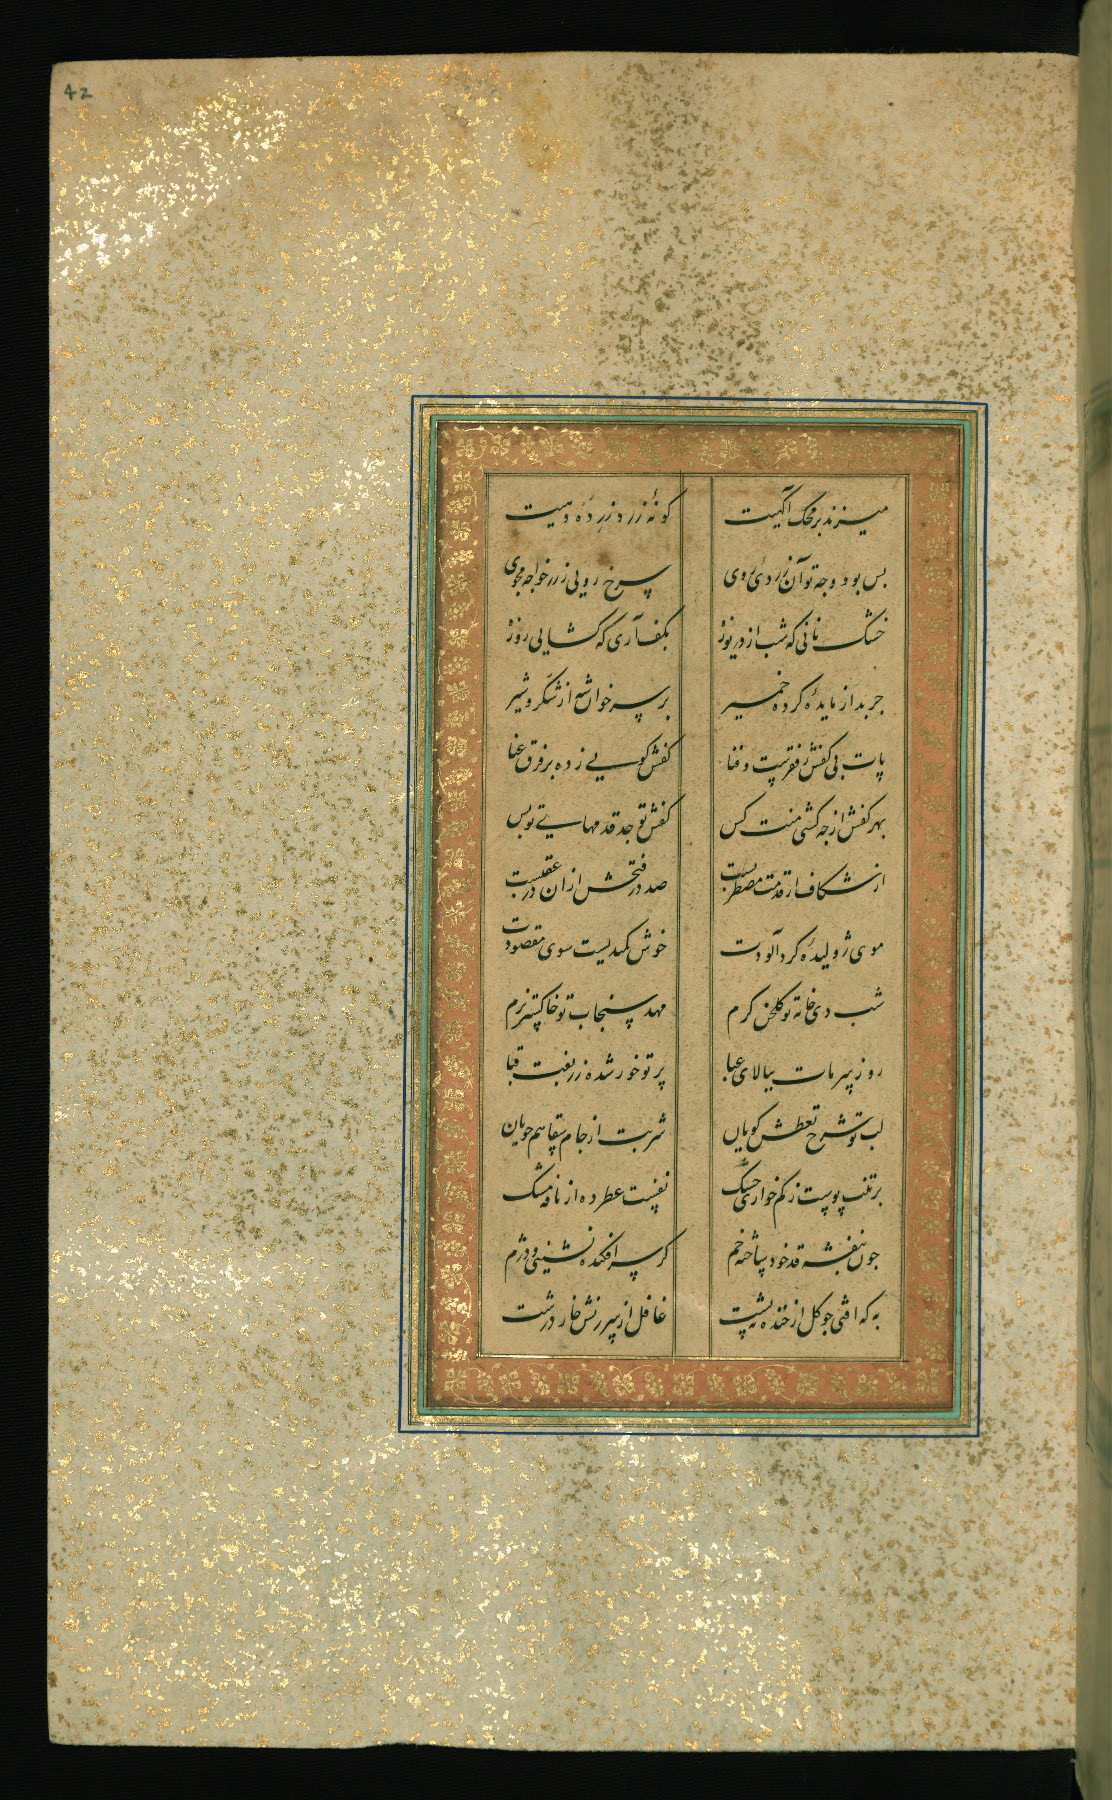 42
میزند بر محک آگهیت گونهٔ زرد زر ده دهیت
بس بود وجه تو آن زردی روی سرخ رویی ز زر خواجه مجوی
خشک نانی که شب از دریوزه بکف آری که گشایی روزه
چربد از مایدهٔ کرده خمیر بر سر خوان از شکر و شیر
پات بی کفش ز فقرست و فنا کفش کوبی زده بر فرق غنا
بهر کفش از چه کشی منت کس کفش تو جلد قدمهای تو بس
از شکاف ار قدمت مضطربست صد در فتحش از ان در عقبست
موی ژولیدهٔ گرد آلودت خوش کمندیست سوی مقصودت
شب دی خانهٔ تو گلخن گرم مهد سنجاب تو خاکستر نرم
روز سرمات ببالای عبا پرتو خور شده زربفت قبا
لب تو شرح تعطش گویان شربت از جام سقاهم جویان
بر تنت پوست ز کم خواری خشک نفست عطر ده از نافه مشک
چون بنفشه قد خود ساخته خم گر سر افکنده نشینی و دژم
به که افتی چو گل از خنده به پشت غافل از سرزنش خار درشت